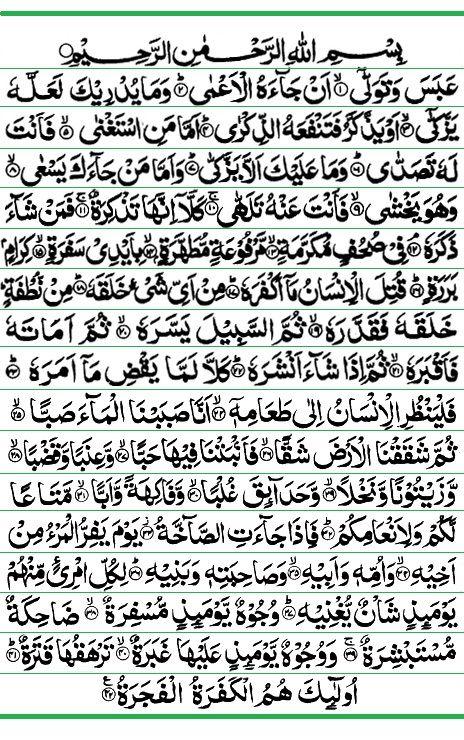 بِسْمِ اللهِ الرَّحْمٰنِ الرَّحِيْمِ
عَبَسَ وَتَوَلّٰٓى ۙ﴿۱﴾ اَنْ جَآءَهُ الْاَعْمٰى ؕ﴿۲﴾ وَمَا يُدْرِيْكَ لَعَلَّهٗ
يَزَّكّٰٓى ۙ﴿۳﴾ اَوْ يَذَّكَّرُ فَتَنْفَعَهُ الذِّكْرٰى ؕ﴿۴﴾ اَمَّا مَنِ اسْتَغْنٰى ۙ﴿۵﴾ فَاَنْتَ
لَهٗ تَصَدّٰى ؕ﴿۶﴾ وَمَا عَلَيْكَ اَلَّا يَزَّكّٰى ؕ﴿۷﴾ وَاَمَّا مَنْ جَآءَكَ يَسْعٰى ۙ﴿۸﴾
وَهُوَ يَخْشٰى ۙ﴿۹﴾ فَاَنْتَ عَنْهُ تَلَهّٰى ۚ﴿۱۰﴾ كَلَّآ اِنَّهَا تَذْكِرَةٌ ۚ﴿۱۱﴾ فَمَنْ شَآءَ
ذَكَرَهٗ ۘ﴿۱۲﴾ فِيْ صُحُفٍ مُّكَرَّمَةٍ ۙ﴿۱۳﴾ مَّرْفُوْعَةٍ مُّطَهَّرَةٍ ۙ﴿۱۴﴾ بِاَيْدِيْ سَفَرَةٍ ۙ﴿۱۵﴾ كِرَامٍۢ
بَرَرَةٍ ؕ﴿۱۶﴾ قُتِلَ الْاِنْسَانُ مَآ اَكْفَرَهٗ ؕ﴿۱۷﴾ مِنْ اَيِّ شَيْءٍ خَلَقَهٗ ؕ﴿۱۸﴾ مِنْ نُّطْفَةٍ ؕ
خَلَقَهٗ فَقَدَّرَهٗ ۙ﴿۱۹﴾ ثُمَّ السَّبِيْلَ يَسَّرَهٗ ۙ﴿۲۰﴾ ثُمَّ اَمَاتَهٗ
فَاَقْبَرَهٗ ۙ﴿۲۱﴾ ثُمَّ اِذَا شَآءَ اَنْشَرَهٗ ؕ﴿۲۲﴾ كَلَّا لَمَّا يَقْضِ مَآ اَمَرَهٗ ؕ﴿۲۳﴾
فَلْيَنْظُرِ الْاِنْسَانُ اِلٰى طَعَامِهٖٓ ۙ﴿۲۴﴾ اَنَّا صَبَبْنَا الْمَآءَ صَبًّا ۙ﴿۲۵﴾
ثُمَّ شَقَقْنَا الْاَرْضَ شَقًّا ۙ﴿۲۶﴾ فَاَنْۢبَتْنَا فِيْهَا حَبًّا ۙ﴿۲۷﴾ وَّعِنَبًا وَّقَضْبًا ۙ﴿۲۸﴾
وَّزَيْتُوْنًا وَّنَخْلًا ۙ﴿۲۹﴾ وَّحَدَآئِقَ غُلْبًا ۙ﴿۳۰﴾ وَّفَاكِهَةً وَّاَبًّا ۙ﴿۳۱﴾ مَّتَاعًا
لَّكُمْ وَلِاَنْعَامِكُمْ ؕ﴿۳۲﴾ فَاِذَا جَآءَتِ الصَّآخَّةُ ۫﴿۳۳﴾ يَوْمَ يَفِرُّ الْمَرْءُ مِنْ
اَخِيْهِ ۙ﴿۳۴﴾ وَاُمِّهٖ وَاَبِيْهِ ۙ﴿۳۵﴾ وَصَاحِبَتِهٖ وَبَنِيْهِ ؕ﴿۳۶﴾ لِكُلِّ امْرِئٍ مِّنْهُمْ
يَوْمَئِذٍ شَاْنٌ يُّغْنِيْهِ ؕ﴿۳۷﴾ وُجُوْهٌ يَّوْمَئِذٍ مُّسْفِرَةٌ ۙ﴿۳۸﴾ ضَاحِكَةٌ
مُّسْتَبْشِرَةٌ ۚ﴿۳۹﴾ وَوُجُوْهٌ يَّوْمَئِذٍ عَلَيْهَا غَبَرَةٌ ۙ﴿۴۰﴾ تَرْهَقُهَا قَتَرَةٌ ؕ﴿۴۱﴾
اُولٰٓئِكَ هُمُ الْكَفَرَةُ الْفَجَرَةُ ﴿۴۲﴾